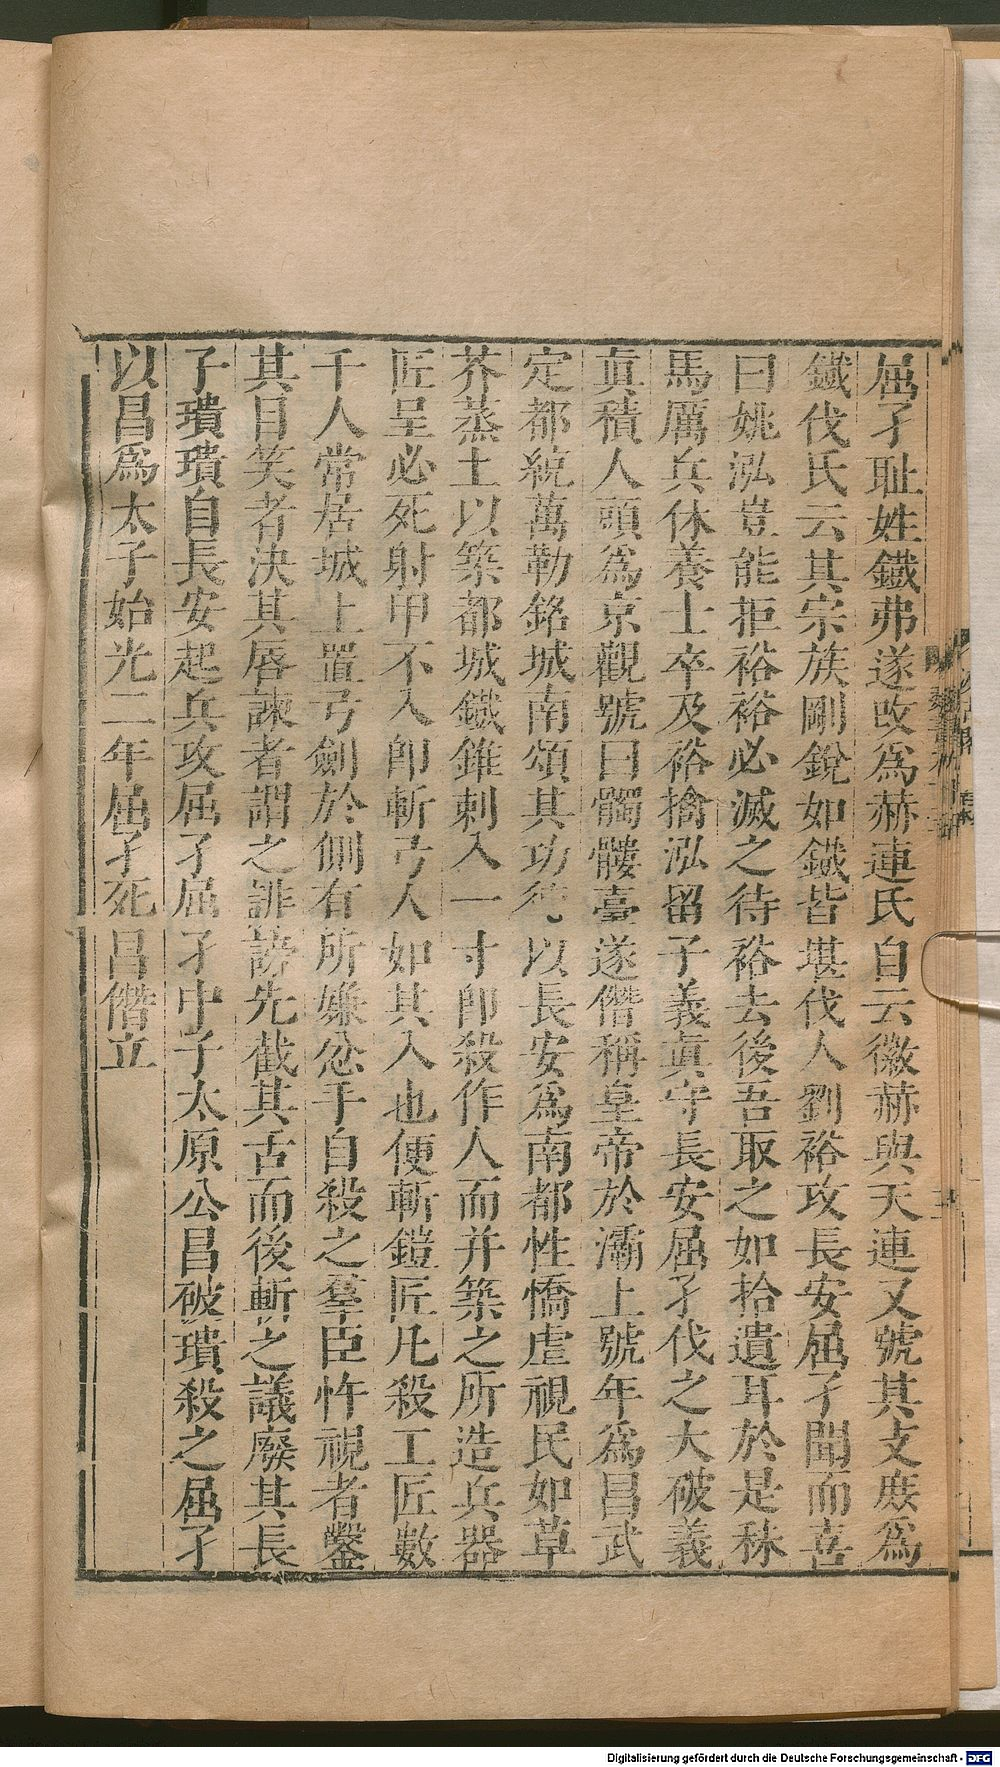 屈孑耻姓鐵弗遂改爲赫連氏自云徽赫與天連又號其支庶爲
鐵伐氏云其宗族剛銳如鐵皆堪伐人劉裕攻長安屈孑聞而喜
曰姚泓豈能拒裕裕必滅之待裕去後吾取之如拾遺耳於是秣
馬厲兵休養士卒及裕擒泓留子義眞守長安屈孑伐之大破義
眞積人頭爲京觀號曰髑髏臺遂僭稱皇帝於灞上號年爲昌武
定都統萬勒銘城南頌其功德以長安爲南都性憍虐視民如草
芥蒸土以築都城鐵錐刺入一寸卽殺作人而并築之所造兵器
匠呈必死射甲不入卽斬弓人如其入也便斬鎧匠凡殺工匠數
千人常居城上置弓劍於側有所嫌忿手自殺之羣臣忤視者鑿
其目笑者決其唇諫者謂之誹謗先截其舌而後斬之議廢其長
子璝璝自長安起兵攻屈孑屈孑中子太原公昌破璝殺之屈孑
以昌爲太子始光二年屈孑死昌僭立
Digitalisierung gefördert durch die Deutsche Forschungsgemeinschaft - DFG